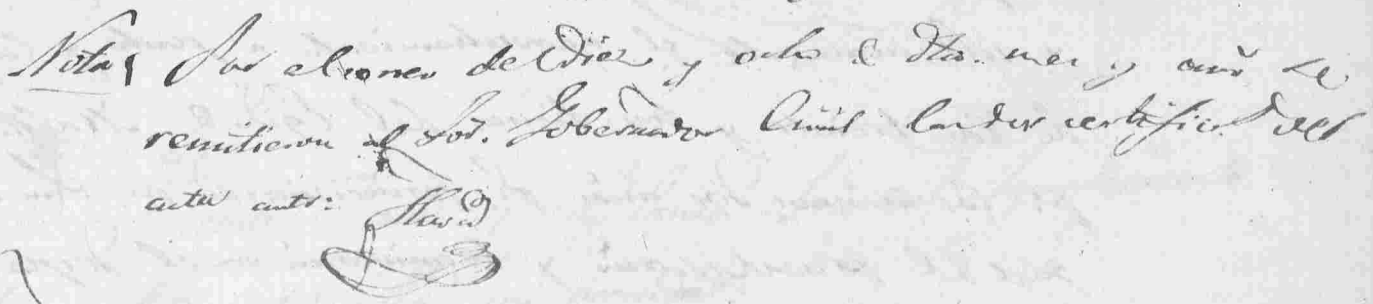 Nota Por el correo del Diez y ocho de dho. mes y año se
remitieron al Sor. Gobernador Civil las dos certific.s del
acta antr: